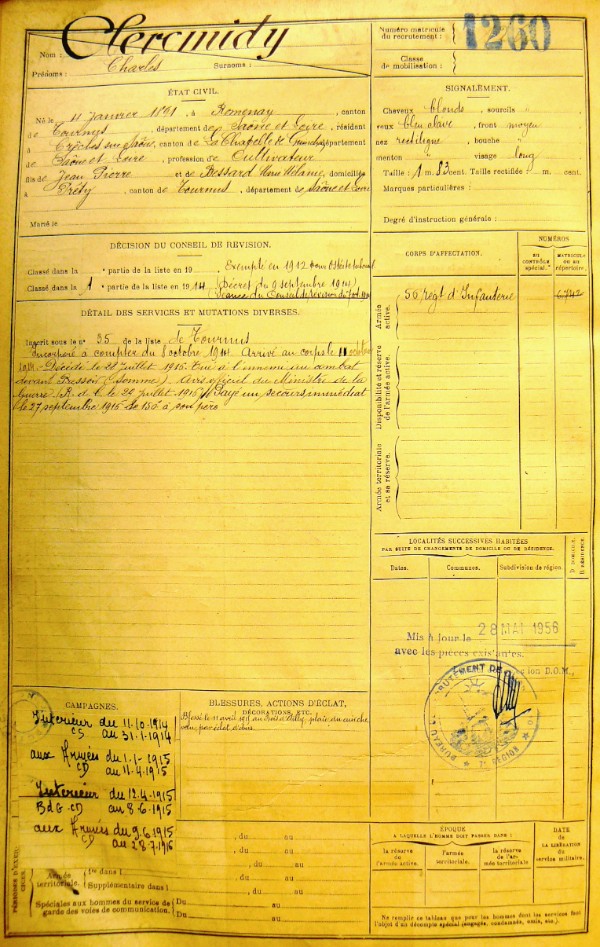 Nom : Clercmidy
Prénoms : Charles Surnoms :
Numéro matricule
du recrutement : 1260
Classe
de mobilisation :
ÉTAT CIVIL.
Né le 11 Janvier 1891, à Romenay, canton
de Tournus, département de Saône et Loire, résidant
canton de La Chapelle de Guinchay, département
de Saône et Loire, profession de Cultivateur
fils de Jean Pierre et de Bessard Marie Mélanie, domiciliés
à Préty, canton de Tournus, département de Saône et Loire
Marié le
SIGNALEMENT.
Cheveux blonds, sourcils "
yeux bleu clave, front moyen
nez rectiligne, bouche "
menton visage long
Taille : 1 m. 83 cent. Taille rectifiée : m. cent.
Marques particulières :
Degré d'instruction générale :
DÉCISION DU CONSEIL DE REVISION.
Classé dans la partie de la liste en 19 Exempté en 1912
Classé dans la 1 partie de la liste en 1914 (Décret du 9 septembre 1914)
DÉTAIL DES SERVICES ET MUTATIONS DIVERSES.
Inscrit sous le n° 35 de la liste de Tournus
Incorporé à compter du 8 octobre 1914 Arrivé au corps le 11 octobre
1914. Décédé le 28 juillet 1915. Tué à l'ennemi au combat
devant (Somme). Avis officiel du Ministre de la
Guerre. juillet 1915. Payé un secours immédiat
le 27 septembre 1915 de 150 à son père
CORPS D'AFFECTATION.
NUMÉROS
AU CONTRÔLE spécial.
MATRICULE OU AU répertoire.
Armée active.
56 regt d'Infanterie 6742
Disponibilité et réserve de l'armée active.
Armée territoriale et sa réserve.
LOCALITÉS SUCCESSIVES HABITÉES
PAR SUITE DE CHANGEMENTS DE DOMICILE OU DE RÉSIDENCE.
Dates. Communes. Subdivision de région. D. DOMICILE. R. RÉSIDENCE.
Mis à jour le 28 MAI 1956
avec les pièces existantes.
BUREAU RECRUTEMENT DE
7e RÉGION
CAMPAGNES.
Intérieur du 11-10-1914
CS au 31-1-1914
aux Armées du 1-1-1915
CD au 11-4-1915
Intérieur du 12-4-1915
BdG CD au 8-6-1915
aux Armées du 9-6-1915
CD au 28-7-1915
BLESSURES, ACTIONS D'ÉCLAT,
DÉCORATIONS, ETC.
Blessé le 11 avril 1915 au Bois d'Ailly, plaie
par éclat d'obus
, du au
, du au
, du au
Armée territoriale.
1re dans l , du au
Supplémentaire dans l , du au
Spéciales aux hommes du service de
garde des voies de communication.
Du au
Du au
ÉPOQUE
À LAQUELLE L'HOMME DOIT PASSER DANS :
la réserve de l'armée active.
l'armée territoriale.
la réserve de l'armée territoriale
DATE
de LA LIBÉRATION du service militaire.
Ne remplir ce tableau que pour les hommes dont les services font
l'objet d'un décompte spécial (engagés, condamnés, omis, etc.)